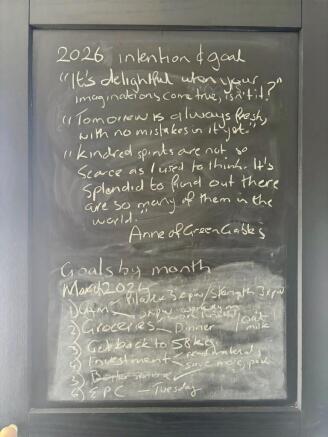 2026 intention & goal
"It's delightful when your
imaginations come true, isn't it?"
"Tomorrow is always fresh,
with no mistakes in it yet."
"Kindred spirits are not so
scarce as I used to think. It's
splendid to find out there
are so many of them in the
world."
Anne of Green Gables
Goals by month
March 2026
1) Gym – Pilates 3x pw/strength 3x pw
2) Groceries – Dinner 1 milk
3) Get back to 58kg
4) Investment
save more
6) EPC – Tuesday